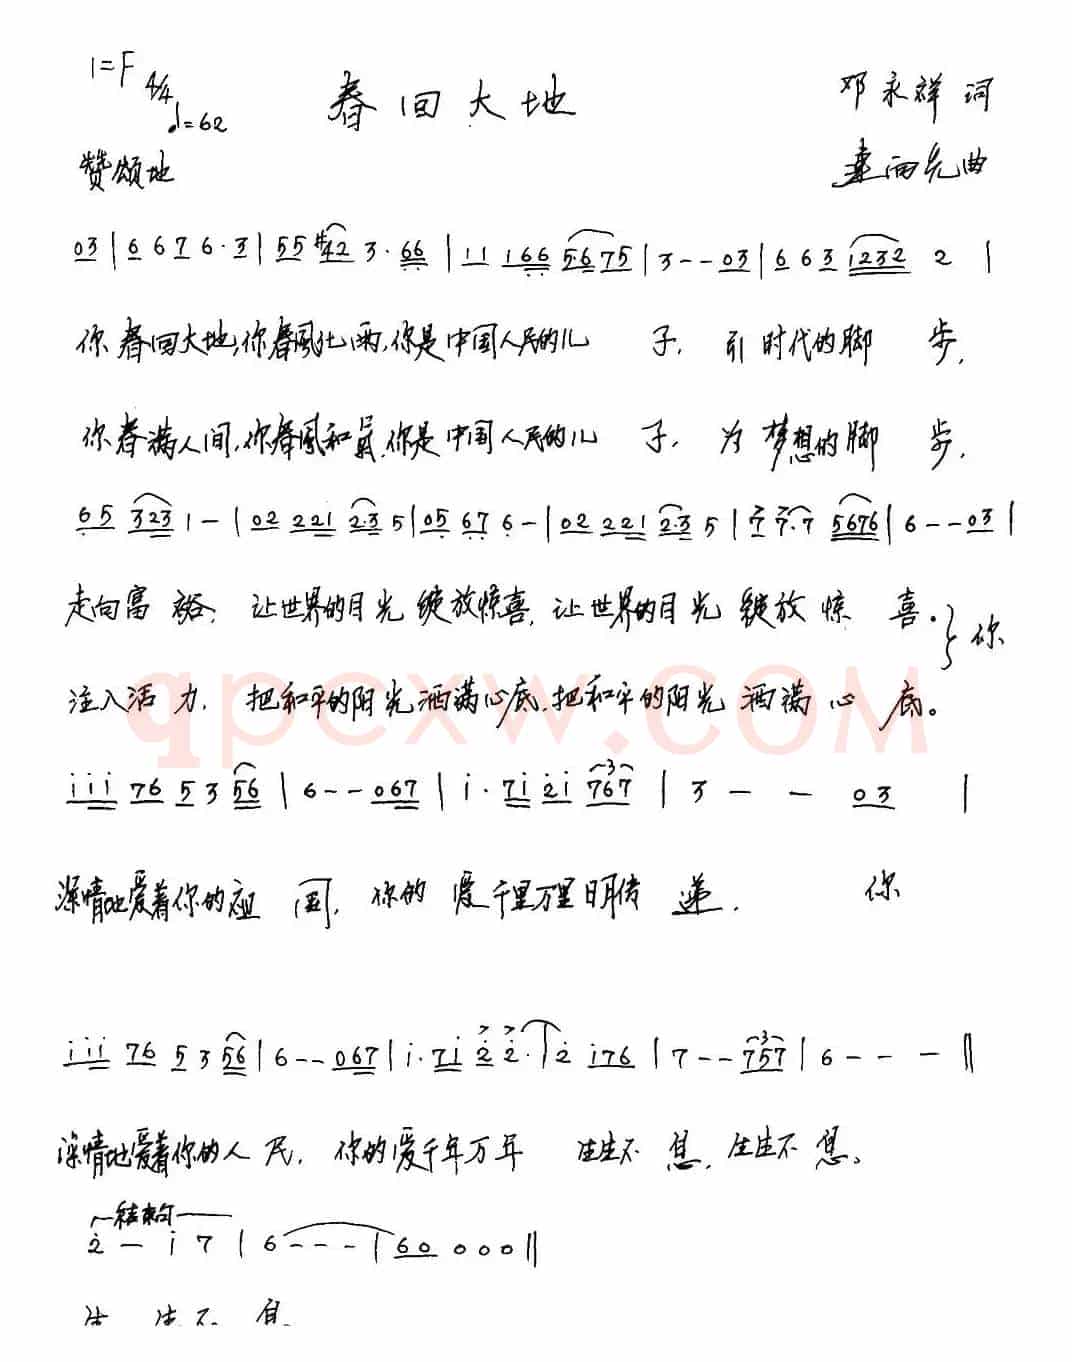 1=F 4/4
♩=62
春回大地
邓永祥 词
雨先曲
赞颂地
03 | 6 6 7 6·3 | 55 #42 3·66 | 11 166 5·675 | 3 - - 03 | 6 6 3 1232 2 |
你春回大地,你春风化雨,你是中国人民的儿 子, 引时代的脚 步,
你春满人间,你春风和煦,你是中国人民的儿 子, 为梦想的脚 步,
65 323 1 - | 02 221 2·3 5 | 05 67 6 - | 02 221 2·3 5 | 7 7·7 5676 | 6 - - 03 |
走向富 裕, 让世界的目光 绽放惊喜, 让世界的目光 绽放 惊 喜. } 你
注入活 力, 把和平的阳光洒满心底,把和平的阳光 洒满 心 底。
qpcxw.com
i i i 76 5 3 56 | 6 - - 067 | i·7i 2i 767 | 3 - - 03 |
深情地爱着你的祖 国, 你的 爱千里万里 传 递. 你
i i i 76 5 3 56 | 6 - - 067 | i·7i 2 2·| 2 i76 | 7 - - 757 | 6 - - - ‖
深情地爱着你的人 民, 你的爱千年万年 生生不 息, 生生不 息。
结束句
2 - i 7 | 6 - - - | 60 0 0 0 ‖
生 生不 息.